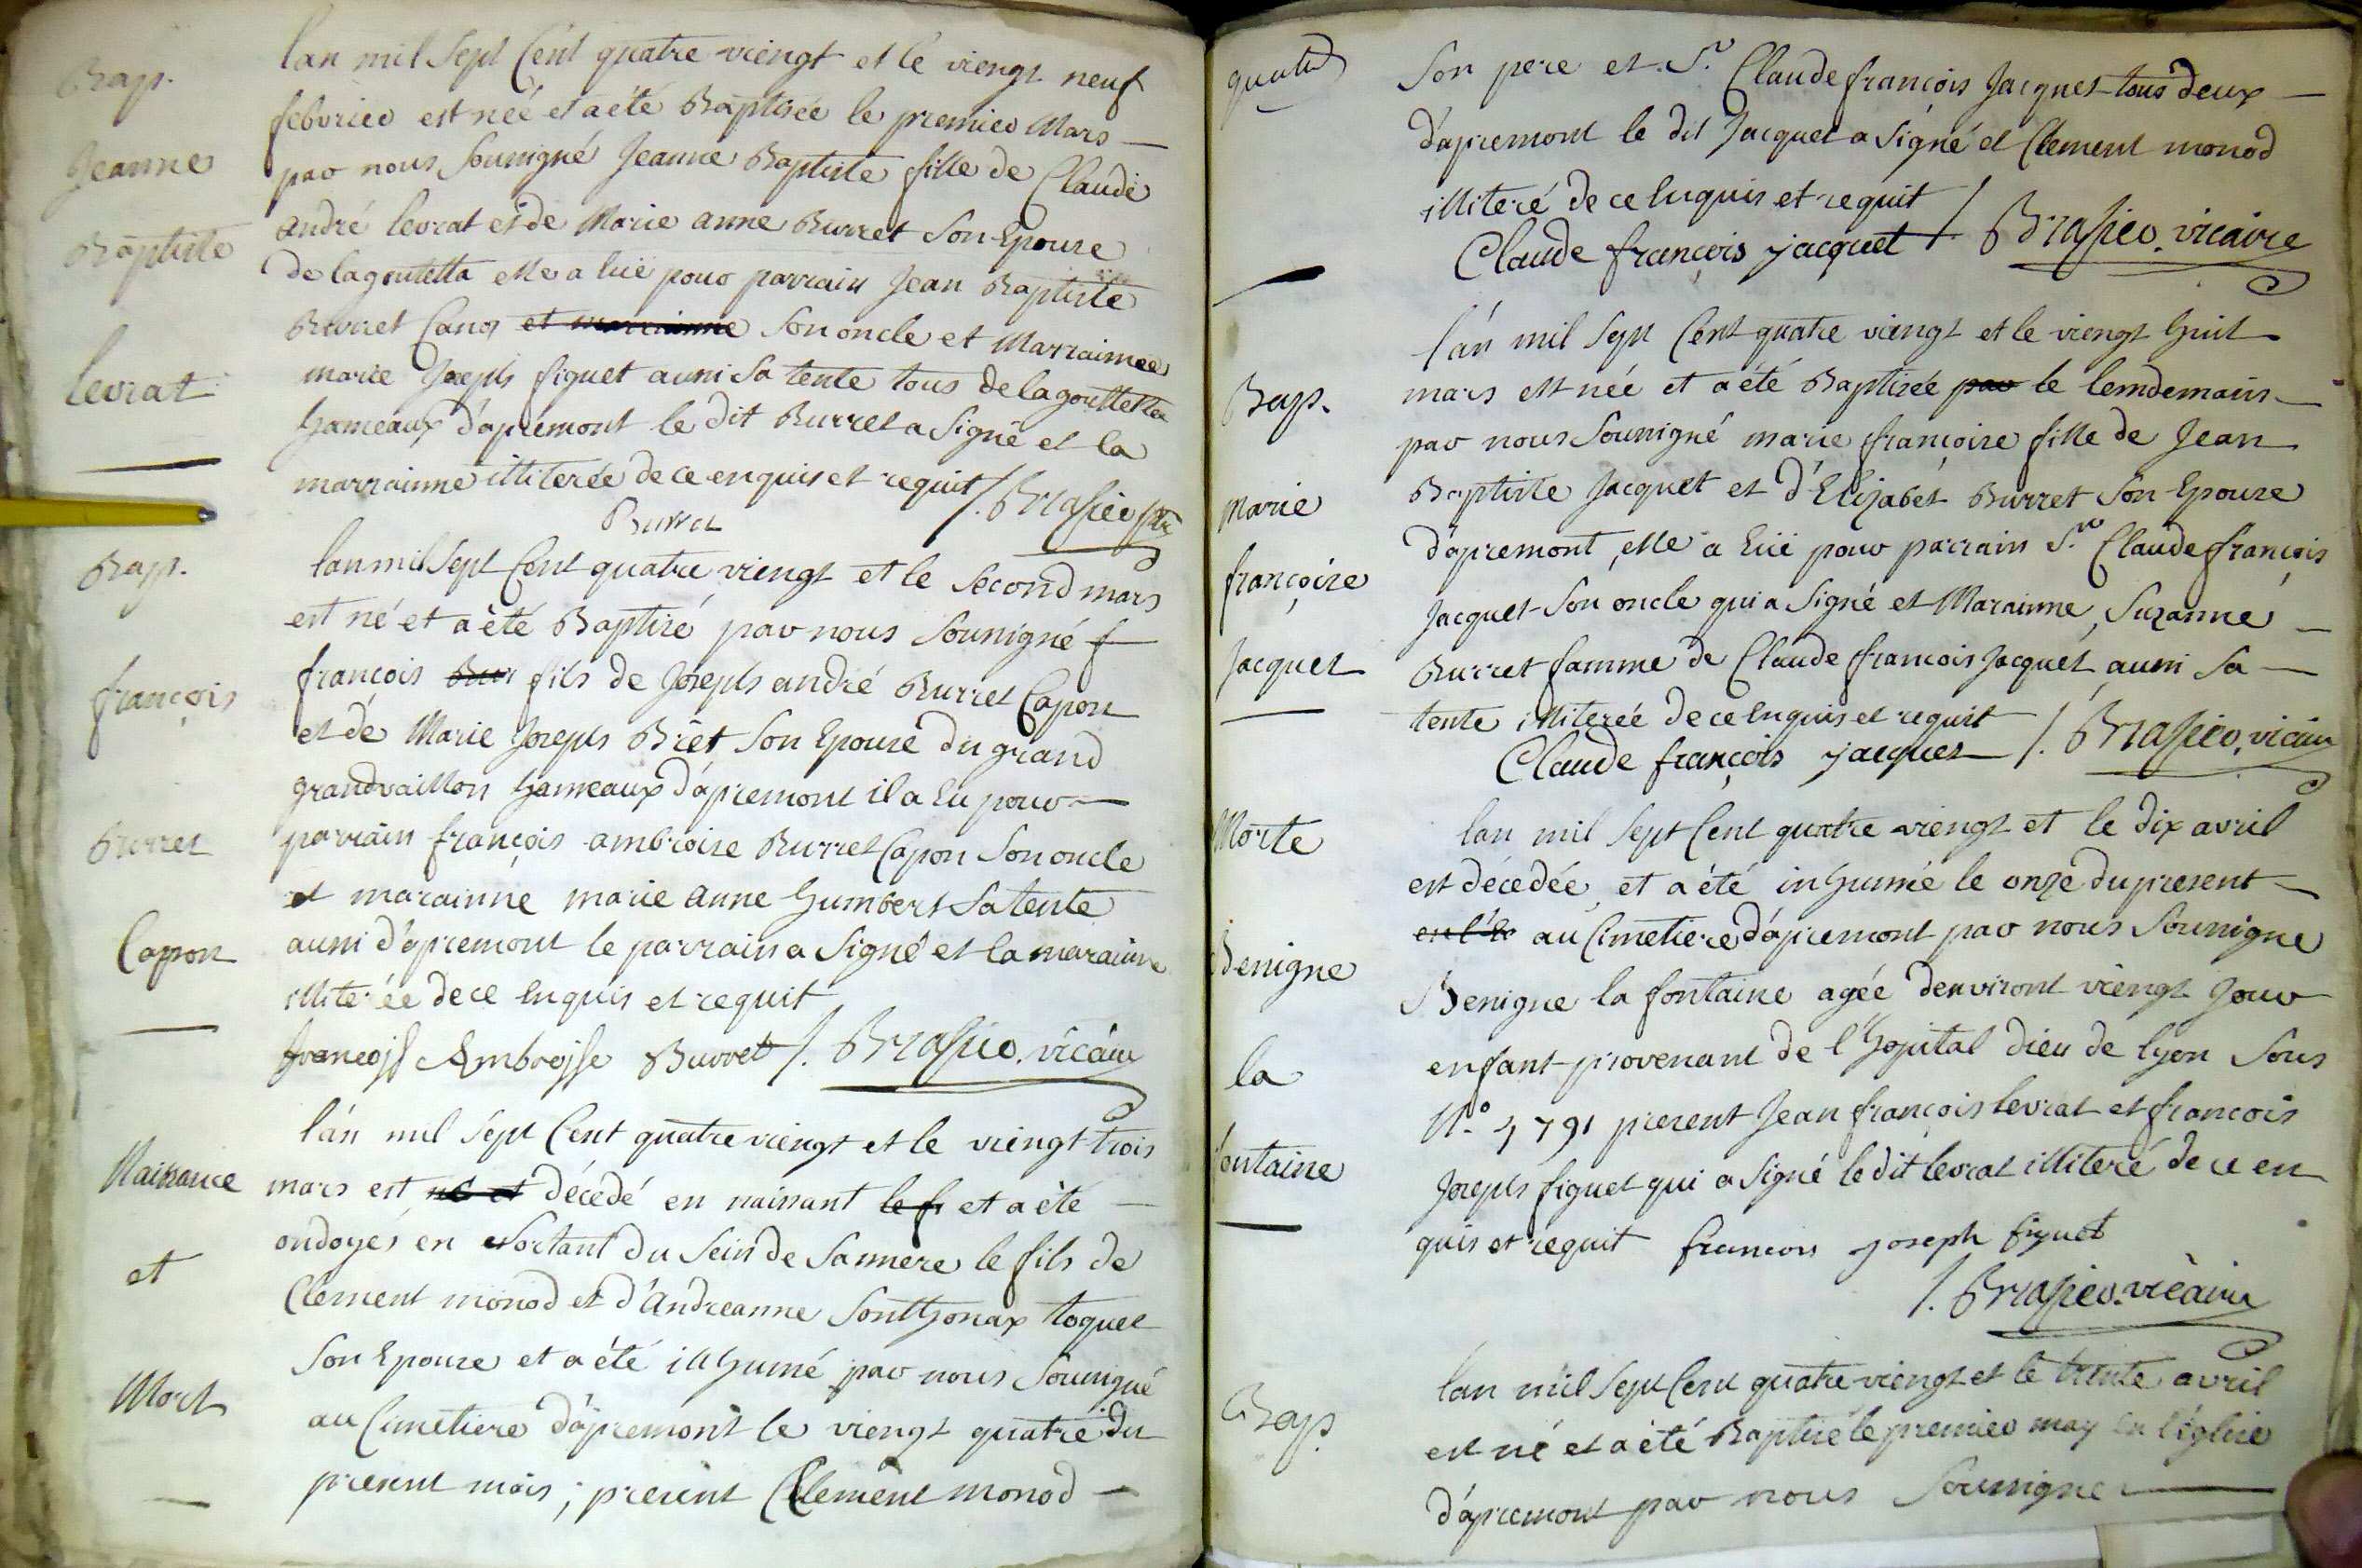 Bap.
Jeanne
Baptiste
levrat
lan mil Sept Cent quatre viengt et le viengt neuf
febvrier est née et a été Baptisée le premier Mars —
par nous Soussigné Jeanne Baptiste fille de Claude
andré levrat et de Marie anne Burret Son Epouse
de lagoutetta elle a hüe pour parrain Jean Baptiste
Burret et marrainne Son oncle et Marrainne
marie Joseph figuet aussi Sa tente tous de lagouttetta
hameaux d'apremont le dit Burret a Signé et la
marrainne illiterée de ce enquis et requit /. Brasier ptre
Burret
Bap.
françois
Burret
Capon
lan mil Sept Cent quatre viengt et le Second mars
est né et a été Baptisé par nous Soussigné f
françois Bur fils de Joseph andré Burret Capon
et de Marie Joseph Bret Son Epouse du grand
grandvaillon hameaux d'apremont il a Eu pour —
parrain françois ambroise Burret Capon Son oncle
et marainne marie anne humbert Sa tente
aussi d'apremont le parrain a Signé et la marainne
illiterée de ce Enquis et requit
francojs Ambrojsse Burret /. Brasier. vicaire
Naissance
et
Mort
l'an mil Sept Cent quatre viengt et le viengt trois
mars est né et décedé en naissant le f et a été —
ondoyés en Sortant du Sein de Sa mere le fils de
Clement monod et d'andreanne Sonthonax toquet
Son Epouse et a été inhumé par nous Soussigné
au Cimetiere d'apremont le viengt quatre du
present mois ; present Clement monod —
Son pere et Sr Claude françois Jacquet tous deux —
d'apremont le dit Jacquet a Signé et Clement monod
illiteré de ce Enquis et requit
Claude françois jacquet /. Brasier. vicaire
Bap.
Marie
françoise
Jacquet
l'an mil Sept Cent quatre viengt et le viengt huit
mars est née et a été Baptisée par le lemdemain —
par nous Soussigné marie françoise fille de Jean
Baptiste Jacquet et d'Elizabet Burret Son Epouse
d'apremont, elle a Eüe pour parrain Sr Claude françois
Jacquet Son oncle qui a Signé et Marainne Suzanne —
Burret famme de Claude françois Jacquet aussi Sa —
tente illiterée de ce Enquis et requit
Claude françois jacquet /. Brasier. vicaire
Morte
Benigne
la
fontaine
lan mil Sept Cent quatre viengt et le dix avril
est décedée et a été inhumée le onze du present —
en l'e au Cimetiere d'apremont par nous Soussigne
Benigne la fontaine agée denviront viengt Jour
enfant provenant de l'hopital dieu de lyon Sous
N.o 4791 present Jean françois levrat et francois
Joseph figuet qui a Signé le dit levrat illiteré de ce en
quis et requit francois joseph figuet
/. Brasier. vicaire
Bap.
lan mil Sept Cent quatre viengt et le trente avril
est né et a été Baptisé le premier may en l'église
d'apremont par nous Soussigne —